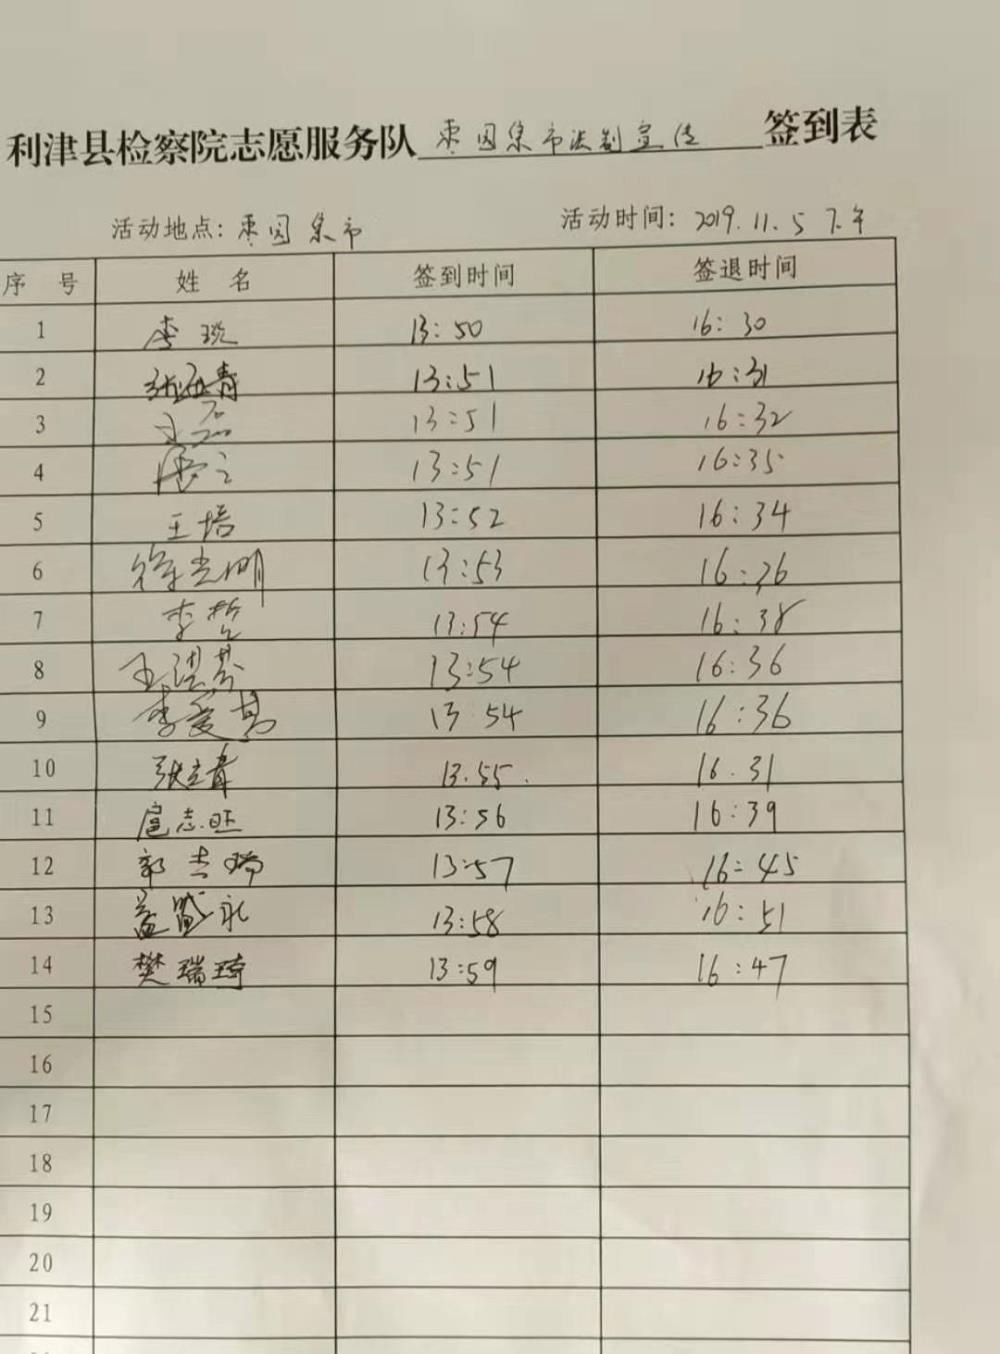 利津县检察院志愿服务队 枣园集市法制宣传 签到表
活动地点：枣园集市 活动时间：2019.11.5 下午
序 号 姓 名 签到时间 签退时间
1 李 13:50 16:30
2 张 青 13:51 16:31
3 王磊 13:51 16:32
4 13:51 16:35
5 王培 13:52 16:34
6 徐光明 13:53 16:36
7 李哲 13:54 16:38
8 王洪芬 13:54 16:36
9 李爱 13 54 16:36
10 张立青 13.55. 16.31
11 扈志旺 13:56 16:39
12 郭 瑞 13:57 16:45
13 盖 礼 13:58 16:51
14 樊瑞琦 13:59 16:47
15
16
17
18
19
20
21